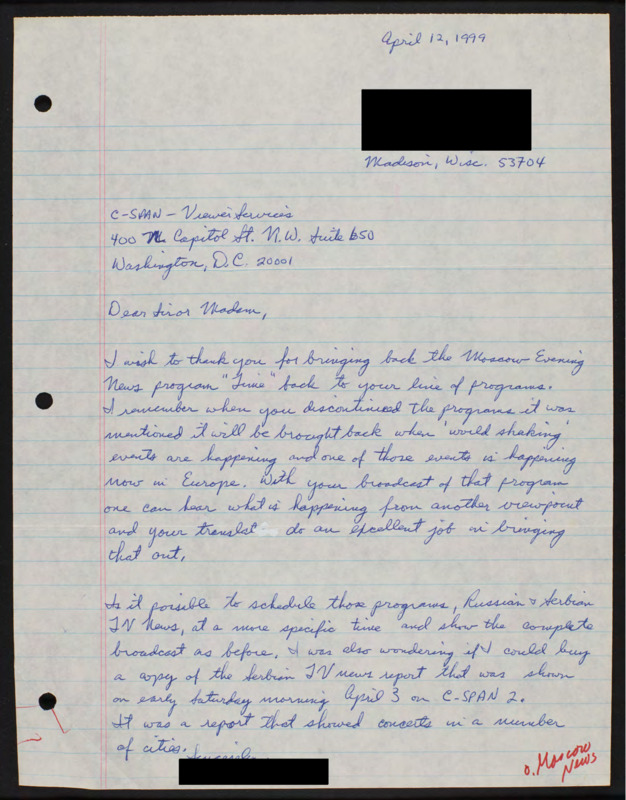 April 12, 1999
Madison, Wisc. 53704
C-SPAN - Viewer Services
400 N. Capitol St. N.W. Suite 650
Washington, D.C. 20001
Dear Sir or Madam,
I wish to thank you for bringing back the Moscow Evening
News program "Time" back to your line of programs.
I remember when you discontinued the programs it was
mentioned it will be brought back when 'world shaking'
events are happening and one of those events is happening
now in Europe. With your broadcast of that program
one can hear what is happening from another viewpoint
and your translat do an excellent job in bringing
that out.
Is it possible to schedule those programs, Russian & Serbian
TV News, at a more specific time and show the complete
broadcast as before. I was also wondering if I could buy
a copy of the Serbian TV news report that was shown
on early Saturday morning April 3 on C-SPAN 2.
It was a report that showed concerts in a number
of cities.
Sincerely
O. Moscow
News